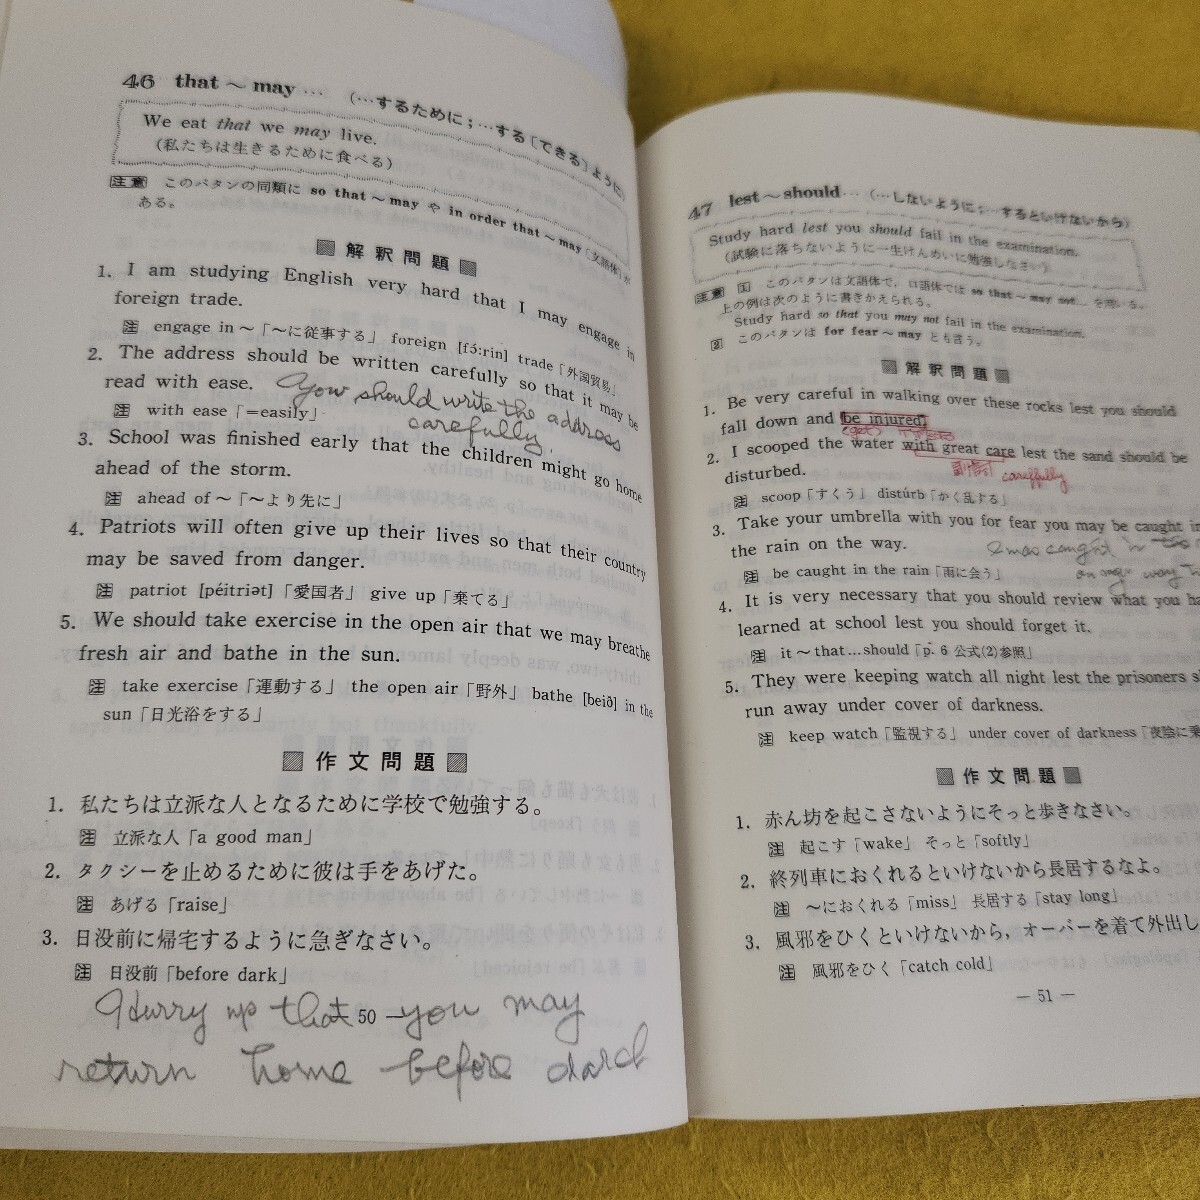 46 that ～ may … (…するために；…する〔できる〕ように)
We eat that we may live.
(私たちは生きるために食べる)
注意 このパタンの同類に so that ～ may や in order that ～ may〔文語体〕が
ある。
解釈問題
1. I am studying English very hard that I may engage in
foreign trade.
注 engage in ～「～に従事する」 foreign [fɔ́:rin] trade「外国貿易」
2. The address should be written carefully so that it may be
read with ease. You should write the address
carefully.
注 with ease「=easily」
3. School was finished early that the children might go home
ahead of the storm.
注 ahead of ～「～より先に」
4. Patriots will often give up their lives so that their country
may be saved from danger.
注 patriot [péitriət]「愛国者」 give up「棄てる」
5. We should take exercise in the open air that we may breathe
fresh air and bathe in the sun.
注 take exercise「運動する」 the open air「野外」 bathe [beið] in the
sun「日光浴をする」
作文問題
1. 私たちは立派な人となるために学校で勉強する。
注 立派な人「a good man」
2. タクシーを止めるために彼は手をあげた。
注 あげる「raise」
3. 日没前に帰宅するように急ぎなさい。
注 日没前「before dark」
— 50 —
Hurry up that you may
return home before darck
47 lest ～ should … (…しないように；…するといけないから)
Study hard lest you should fail in the examination.
(試験に落ちないように一生けんめいに勉強しなさい)
注意 1 このパタンは文語体で，口語体では so that ～ may not … を用いる。
上の例は次のように書きかえられる。
Study hard so that you may not fail in the examination.
2 このパタンは for fear ～ may とも言う。
解釈問題
1. Be very careful in walking over these rocks lest you should
fall down and be injured.
(get)
2. I scooped the water with great care lest the sand should be
disturbed. 副詞 carefully
注 scoop「すくう」 distúrb「かく乱する」
3. Take your umbrella with you for fear you may be caught in
the rain on the way.
注 be caught in the rain「雨に会う」
4. It is very necessary that you should review what you ha
learned at school lest you should forget it.
注 it ～ that…should「p. 6 公式(2)参照」
5. They were keeping watch all night lest the prisoners s
run away under cover of darkness.
注 keep watch「監視する」 under cover of darkness「夜陰に乗
作文問題
1. 赤ん坊を起こさないようにそっと歩きなさい。
注 起こす「wake」 そっと「softly」
2. 終列車におくれるといけないから長居するなよ。
注 ～におくれる「miss」 長居する「stay long」
3. 風邪をひくといけないから，オーバーを着て外出し
注 風邪をひく「catch cold」
— 51 —